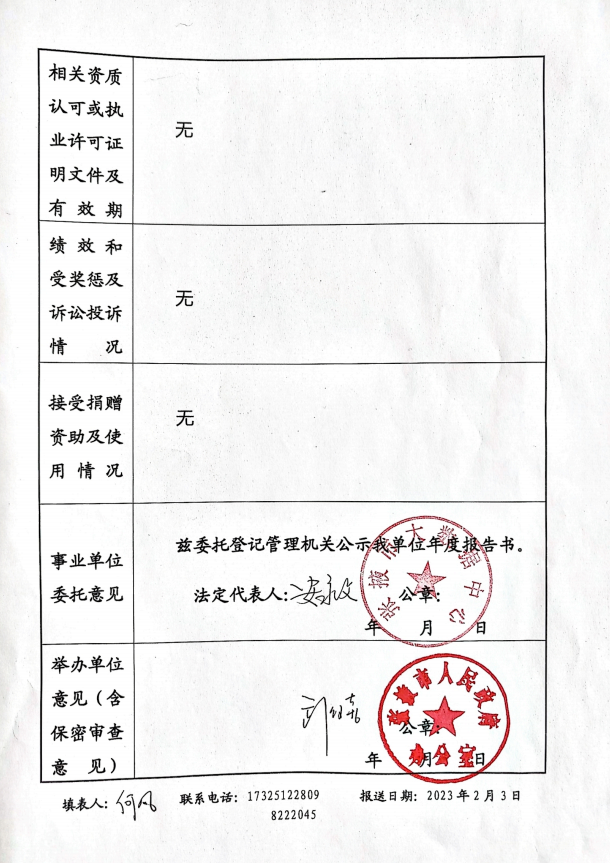 相关资质
认可或执
业许可证
明文件及
有效期
无
绩效和
受奖惩及
诉讼投诉
情况
无
接受捐赠
资助及使
用情况
无
事业单位
委托意见
兹委托登记管理机关公示我单位年度报告书。
法定代表人:
公章:
年 月 日
张掖市大数据中心
举办单位
意见(含
保密审查
意见)
公章:
年 月 日
张掖市人民政府
办公室
填表人:何风 联系电话: 17325122809 报送日期: 2023年2月3日
8222045